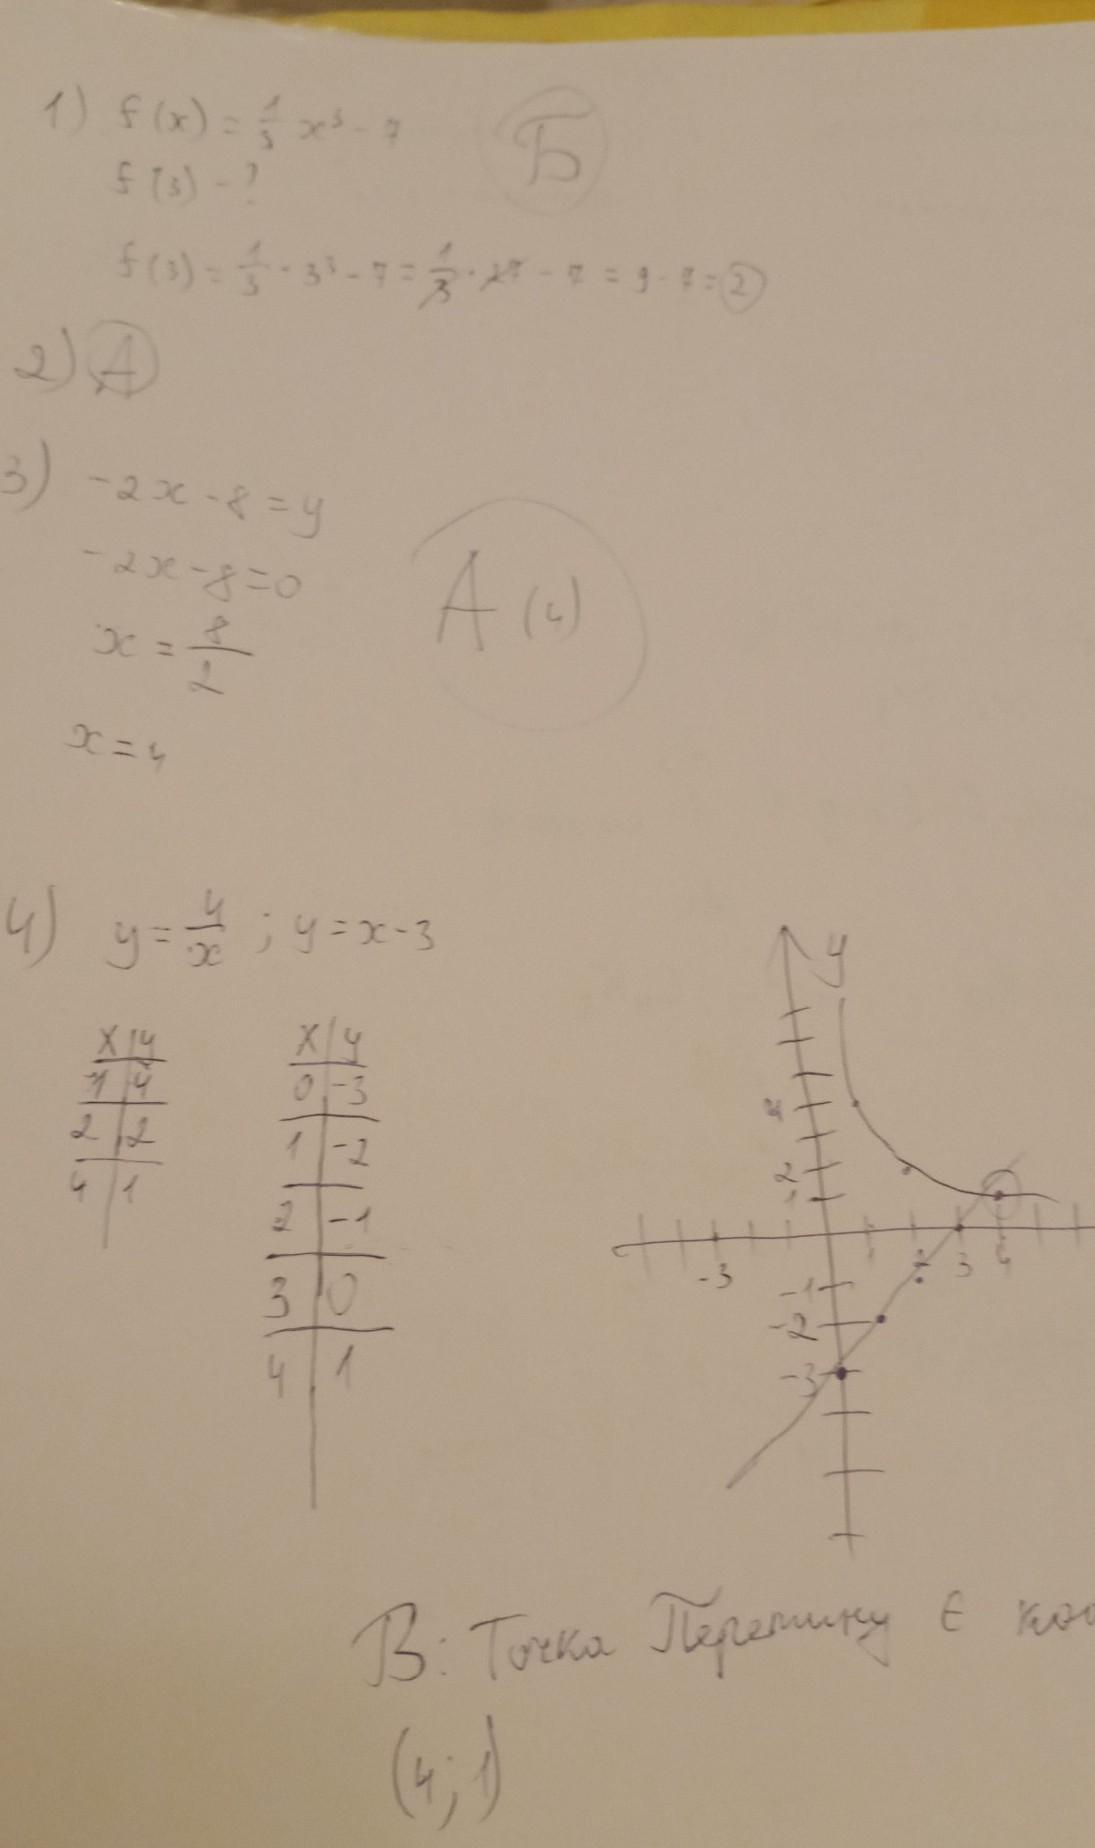 1) f(x) = 1/3 x³ - 7
Б
f(3) - ?
f(3) = 1/3 · 3³ - 7 = 1/3 · 27 - 7 = 9 - 7 = 2
2) А
3) -2x - 8 = y
-2x - 8 = 0
А (4)
x = 8/2
x = 4
4) y = 4/x ; y = x - 3
x | y
1 | 4
2 | 2
4 | 1
x | y
0 | -3
1 | -2
2 | -1
3 | 0
4 | 1
y
4
2
1
-3 1 2 3 4
-1
-2
-3
В: Точка Перетину є
(4; 1)